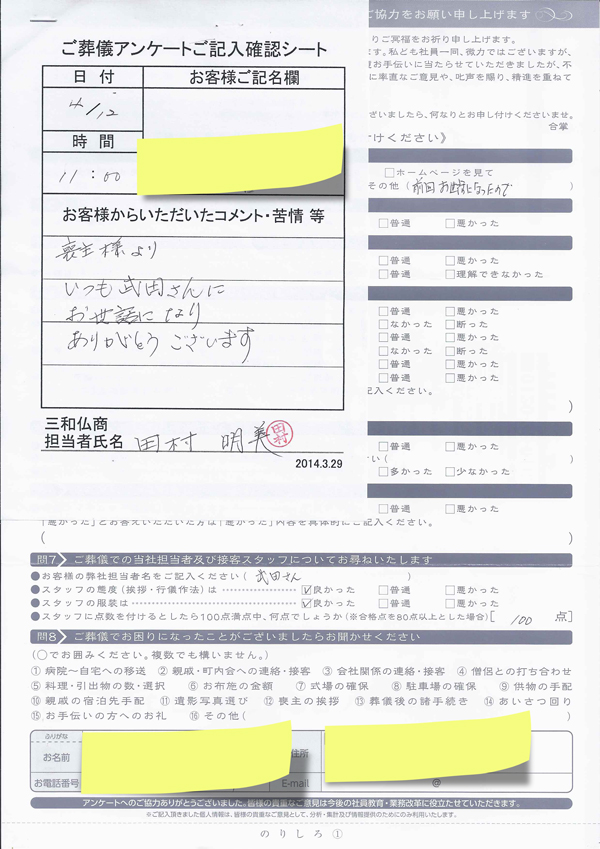 ご協力をお願い申し上げます
ご葬儀アンケートご記入確認シート
日付
お客様ご記名欄
4/12
時間
11:00
お客様からいただいたコメント・苦情 等
喪主様より
いつも武田さんに
お世話になり
ありがとうございます
三和仏商
担当者氏名 田村 明美
田村
2014.3.29
りご冥福をお祈り申し上げます。
ます。私ども社員一同、微力ではございますが、
お手伝いに当たらせていただきましたが、不
に率直なご意見や、叱声を賜り、精進を重ねて
ざいましたら、何なりとお申し付けくださいませ。
合掌
けください》
□ホームページを見て
その他(前回お世話になったので)
□普通 □悪かった
□普通 □悪かった
□普通 □理解できなかった
□普通 □悪かった
□なかった □断った
□普通 □悪かった
□なかった □断った
□普通 □悪かった
□普通 □悪かった
記入ください。
)
□普通 □悪かった
い(
□多かった □少なかった
□普通 □悪かった
「悪かった」とお答えいただいた方は「悪かった」内容を具体的にご記入ください。
( )
問7 ご葬儀での当社担当者及び接客スタッフについてお尋ねいたします
●お客様の弊社担当者名をご記入ください( 武田さん )
●スタッフの態度(挨拶・行儀作法)は ☑良かった □普通 □悪かった
●スタッフの服装は ☑良かった □普通 □悪かった
●スタッフに点数を付けるとしたら100点満点中、何点でしょうか(※合格点を80点以上とした場合)[ 100 点]
問8 ご葬儀でお困りになったことがございましたらお聞かせください
(○でお囲みください。複数でも構いません。)
①病院～自宅への移送 ②親戚・町内会への連絡・接客 ③会社関係の連絡・接客 ④僧侶との打ち合わせ
⑤料理・引出物の数・選択 ⑥お布施の金額 ⑦式場の確保 ⑧駐車場の確保 ⑨供物の手配
⑩親戚の宿泊先手配 ⑪遺影写真選び ⑫喪主の挨拶 ⑬葬儀後の諸手続き ⑭あいさつ回り
⑮お手伝いの方へのお礼 ⑯その他( )
ふりがな
お名前
住所
お電話番号
E-mail
@
アンケートへのご協力ありがとうございました。皆様の貴重なご意見は今後の社員教育・業務改革に役立たせていただきます。
※ご記入頂きました個人情報は、皆様の貴重なご意見として、分析・集計及び情報提供のためにのみ利用いたします。
のりしろ①